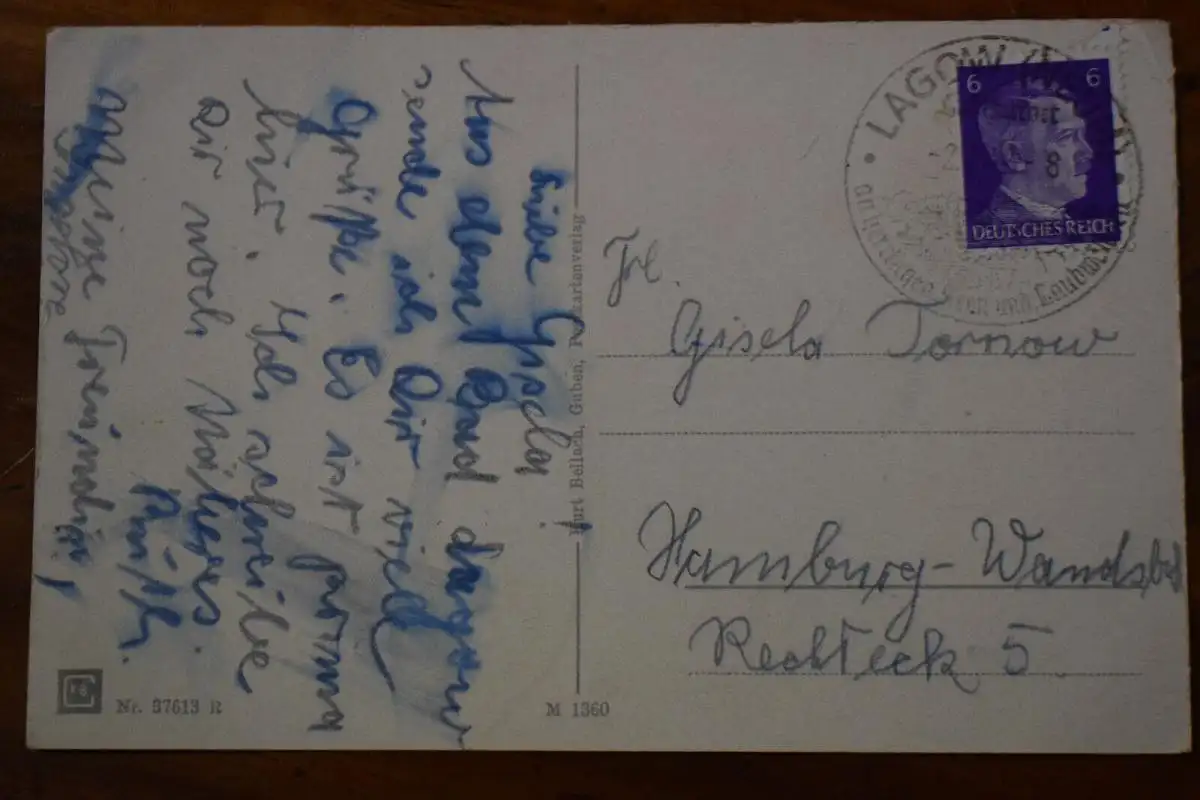 Liebe Gisela!
Aus dem Bad Lagow
sende ich Dir viele
Grüße. Es ist prima
hier. Ich schreibe
Dir noch Näheres.
Ruth.
Meine Freundin,
Kurt Bellach, Guben, Postkartenverlag
M 1360
Nr. 37613 R
LAGOW
und
6 6
DEUTSCHES REICH
8
Frl.
Gisela Tornow
Hamburg-Wandsbek
Rechteck 5